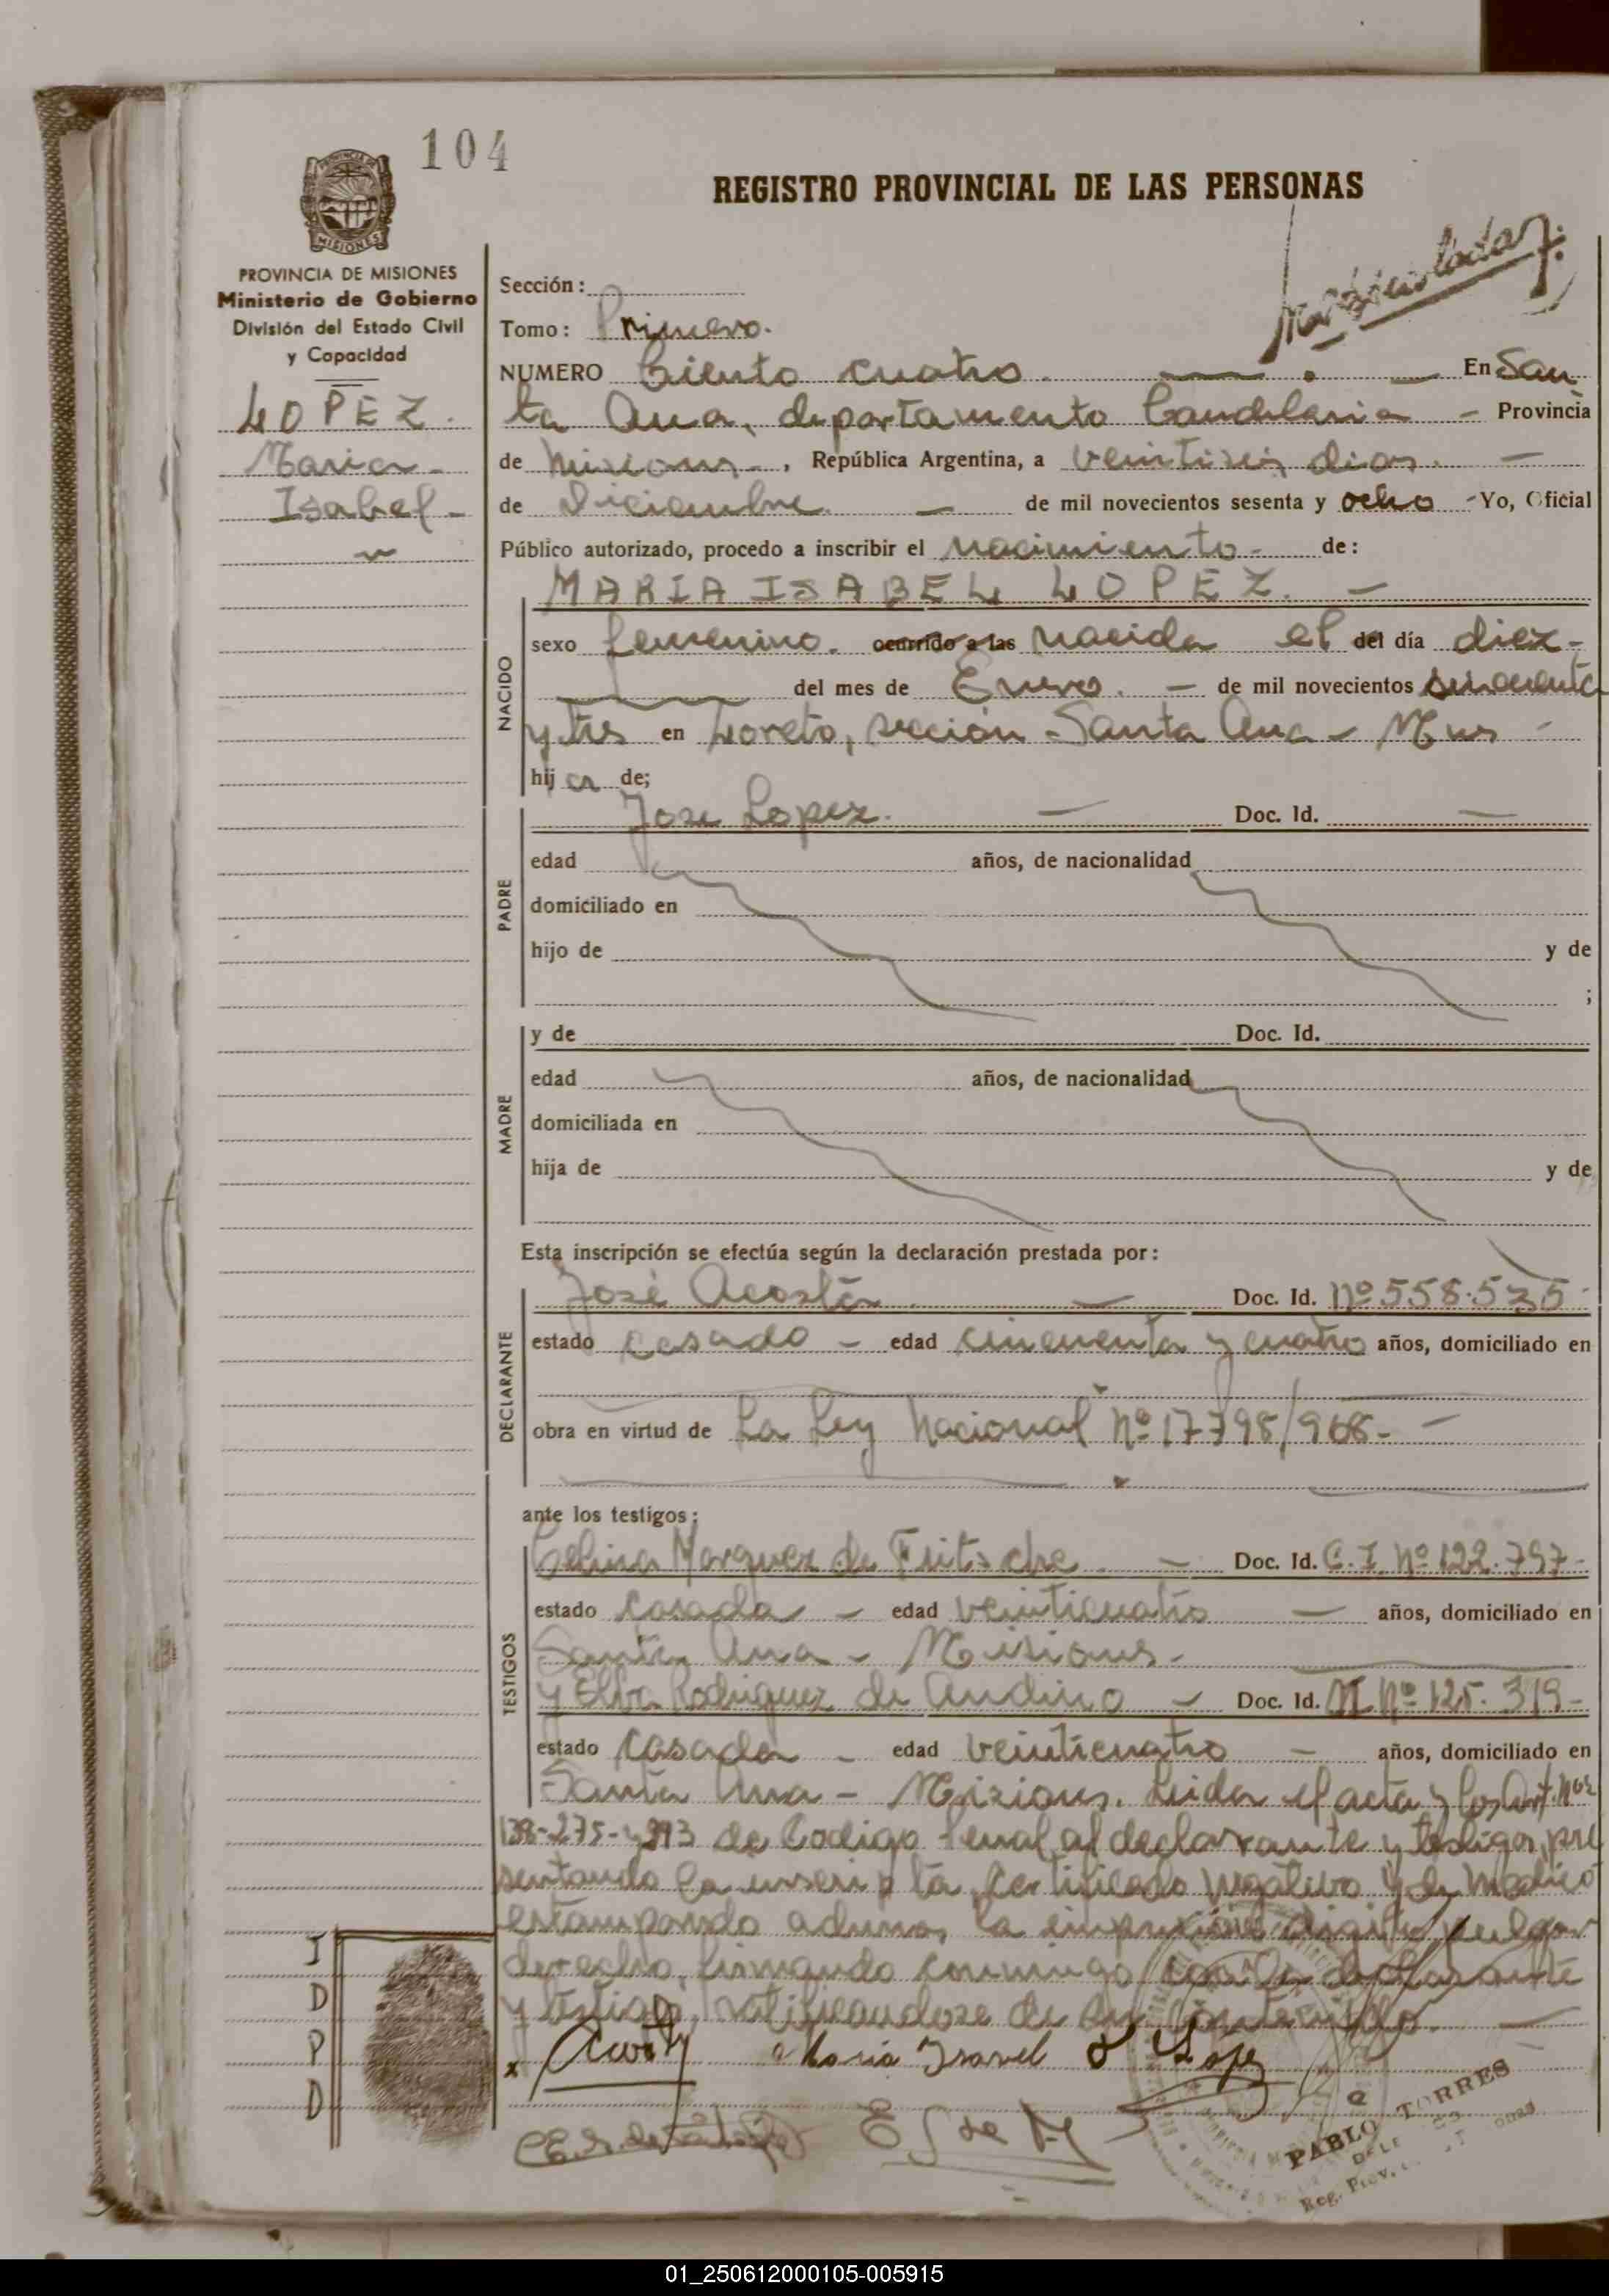 104
REGISTRO PROVINCIAL DE LAS PERSONAS
PROVINCIA DE MISIONES
Ministerio de Gobierno
División del Estado Civil
y Capacidad
LOPEZ.
Maria
Isabel
Sección:
Tomo: Primero.
NUMERO Ciento cuatro. En San
ta Ana, departamento Candelaria - Provincia
de Misiones, República Argentina, a veintiseis dias.
de Diciembre. de mil novecientos sesenta y ocho - Yo, Oficial
Público autorizado, procedo a inscribir el nacimiento de:
MARIA ISABEL LOPEZ. -
NACIDO
sexo femenino. ocurrido a las nacida el del día diez-
del mes de Enero. - de mil novecientos sincuenta
y tres en Loreto, sección Santa Ana - Mnes -
hija de;
PADRE
Jose Lopez. - Doc. Id. -
edad años, de nacionalidad
domiciliado en
hijo de y de
;
MADRE
y de Doc. Id.
edad años, de nacionalidad
domiciliada en
hija de y de
Esta inscripción se efectúa según la declaración prestada por:
DECLARANTE
José Acosta - Doc. Id. Nº 558.535-
estado casado - edad cincuenta y cuatro años, domiciliado en
obra en virtud de La Ley Nacional Nº 17798/968- -
ante los testigos:
TESTIGOS
Celina Marquez de Fritzche - Doc. Id. C.I. Nº 122.797-
estado casada - edad veinticuatro - años, domiciliado en
Santa Ana - Misiones-
y Elba Rodriguez de Andino - Doc. Id. Nº 125.319-
estado casada - edad veinticuatro - años, domiciliado en
Santa Ana - Misiones. Leida el acta y los Art. Nos
138-275- y 293 de Codigo Penal al declarante y testigos, pre
sentando la inscripta, certificado negativo y de medico
estampando ademas la impresión digito pulgar
derecho, firmando conmigo declarante
y testigos, ratificandose de su contenido. -
I
D
P
D
x Acosta Maria Isavel Lopez
PABLO TORRES
Reg. Prov.
01_250612000105-005915